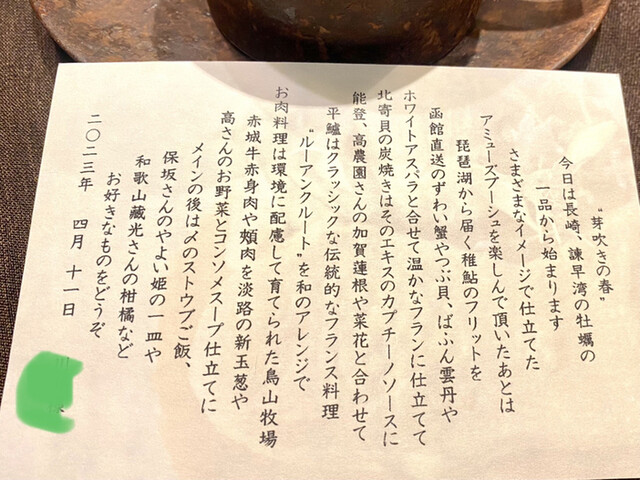 “芽吹きの春”
今日は長崎、諫早湾の牡蠣の
一品から始まります
さまざまなイメージで仕立てた
アミューズブーシュを楽しんで頂いたあとは
琵琶湖から届く稚鮎のフリットを
函館直送のずわい蟹やつぶ貝、ばふん雲丹や
ホワイトアスパラと合せて温かなフランに仕立てて
北寄貝の炭焼きはそのエキスのカプチーノソースに
能登、高農園さんの加賀蓮根や菜花と合わせて
平鱸はクラッシックな伝統的なフランス料理
“ルーアンクルート”を和のアレンジで
お肉料理は環境に配慮して育てられた鳥山牧場
赤城牛赤身肉や頬肉を淡路の新玉葱や
高さんのお野菜とコンソメスープ仕立てに
メインの後は〆のストウブご飯、
保坂さんのやよい姫の一皿や
和歌山藏光さんの柑橘など
お好きなものをどうぞ
二〇二三年 四月 十一日